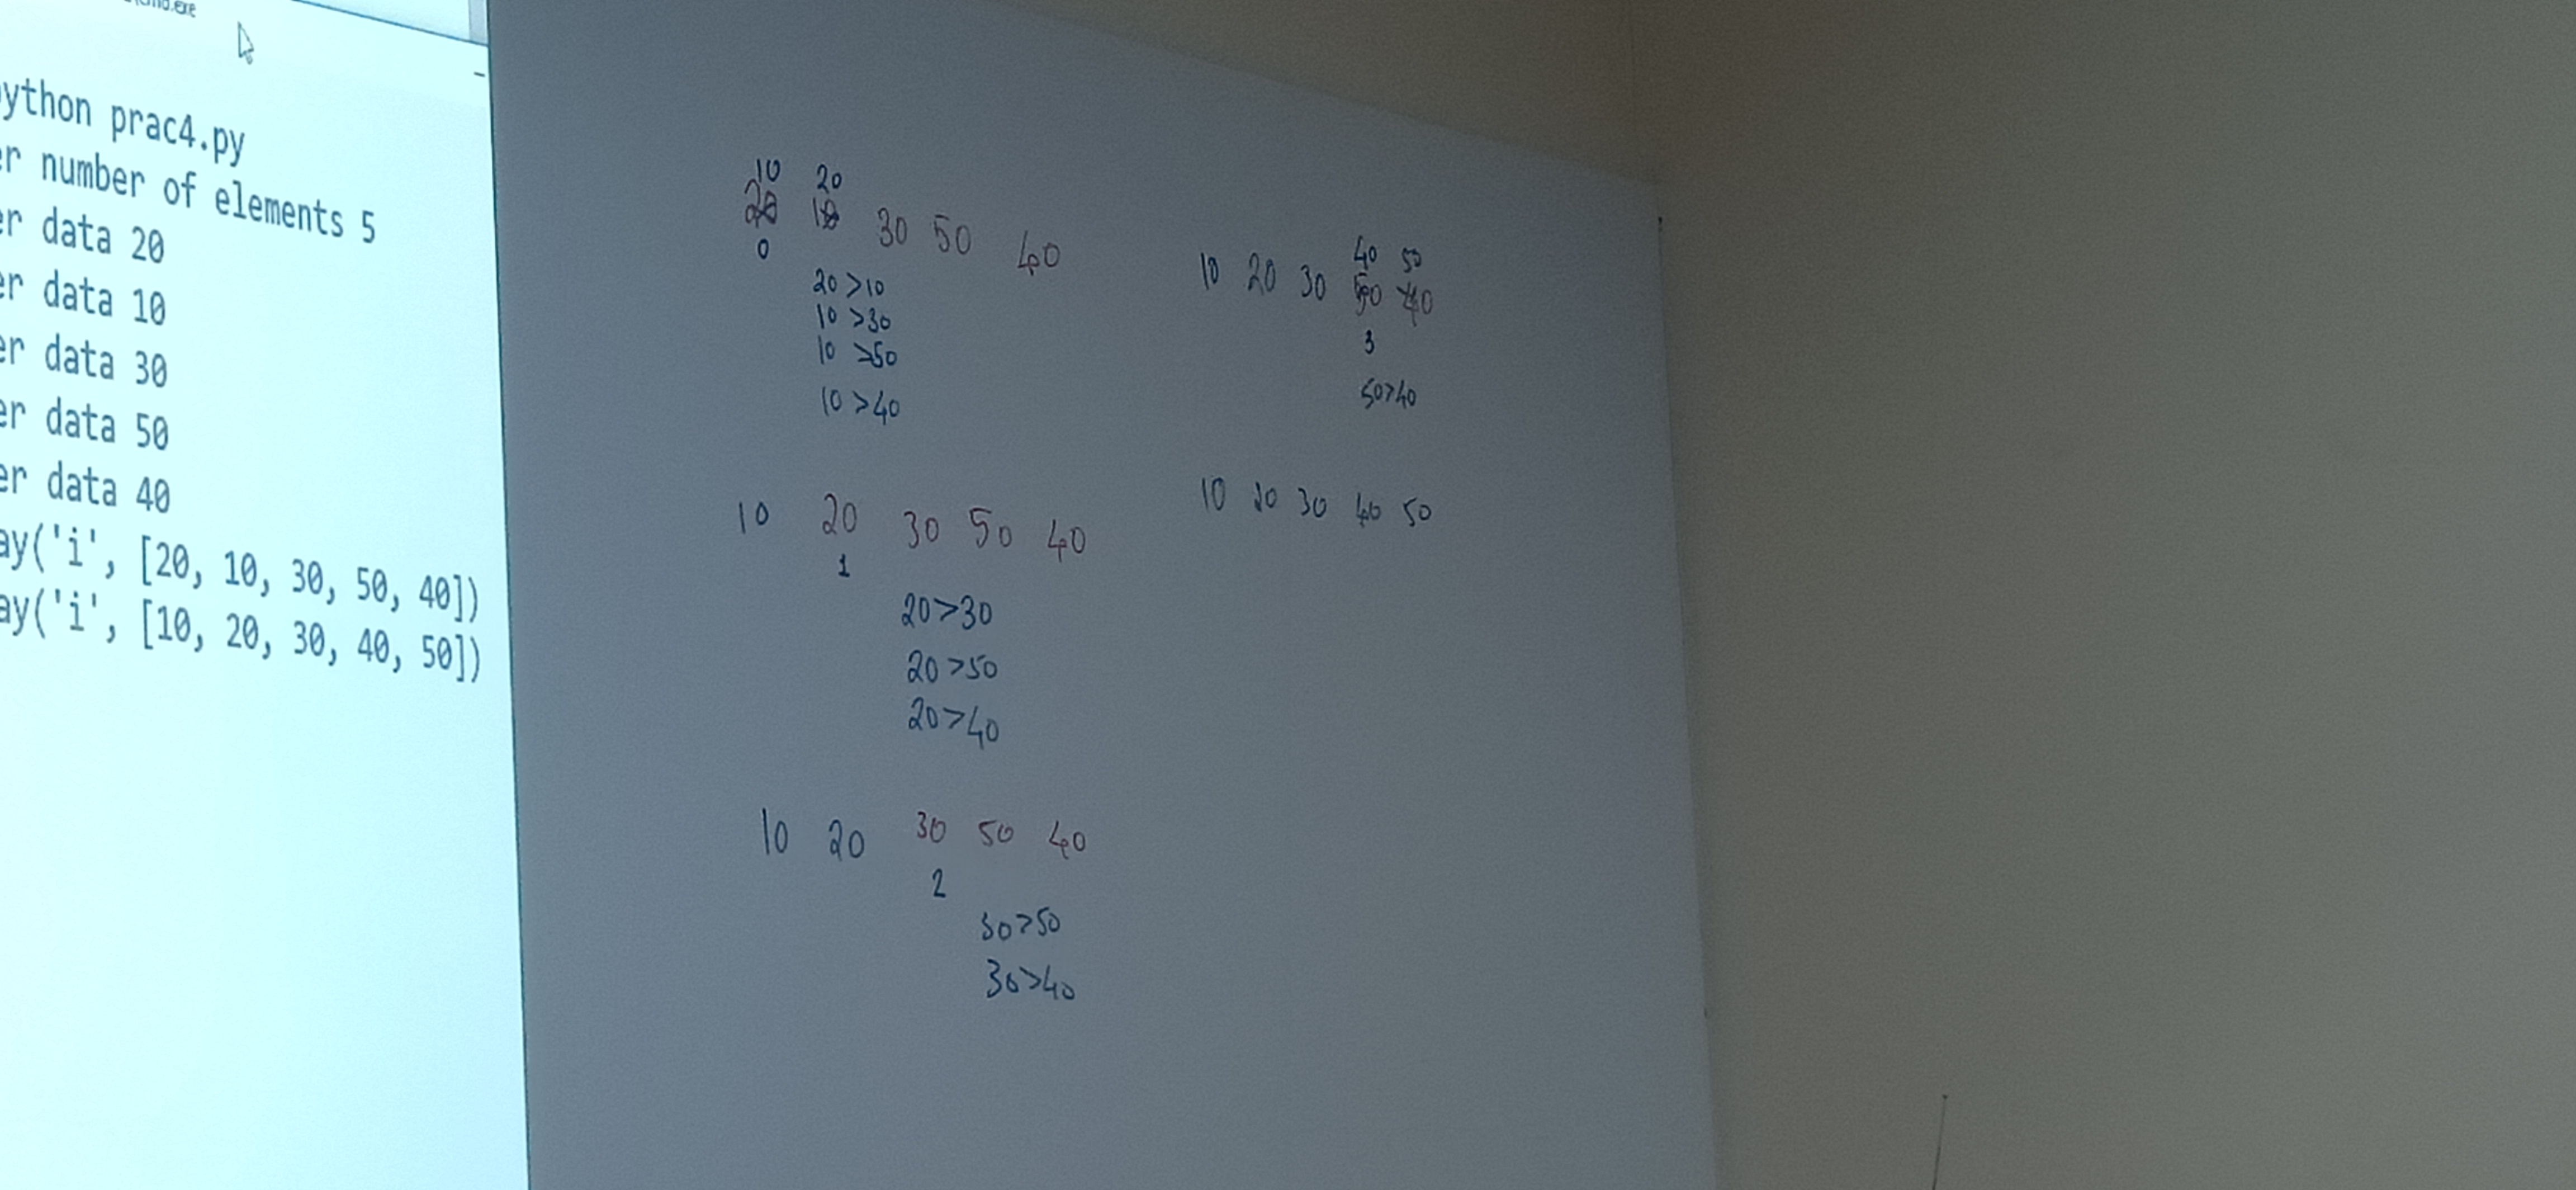 cmd.exe
ython prac4.py
er number of elements 5
er data 20
er data 10
er data 30
er data 50
er data 40
ay('i', [20, 10, 30, 50, 40])
ay('i', [10, 20, 30, 40, 50])
10 20
20 10 30 50 40
0
20 >10
10 >30
10 >50
10 >40
10 20 30 50 40
1
20>30
20 >50
20>40
10 20 30 50 40
2
30>50
30>40
40 50
10 20 30 50 40
3
50>40
10 20 30 40 50